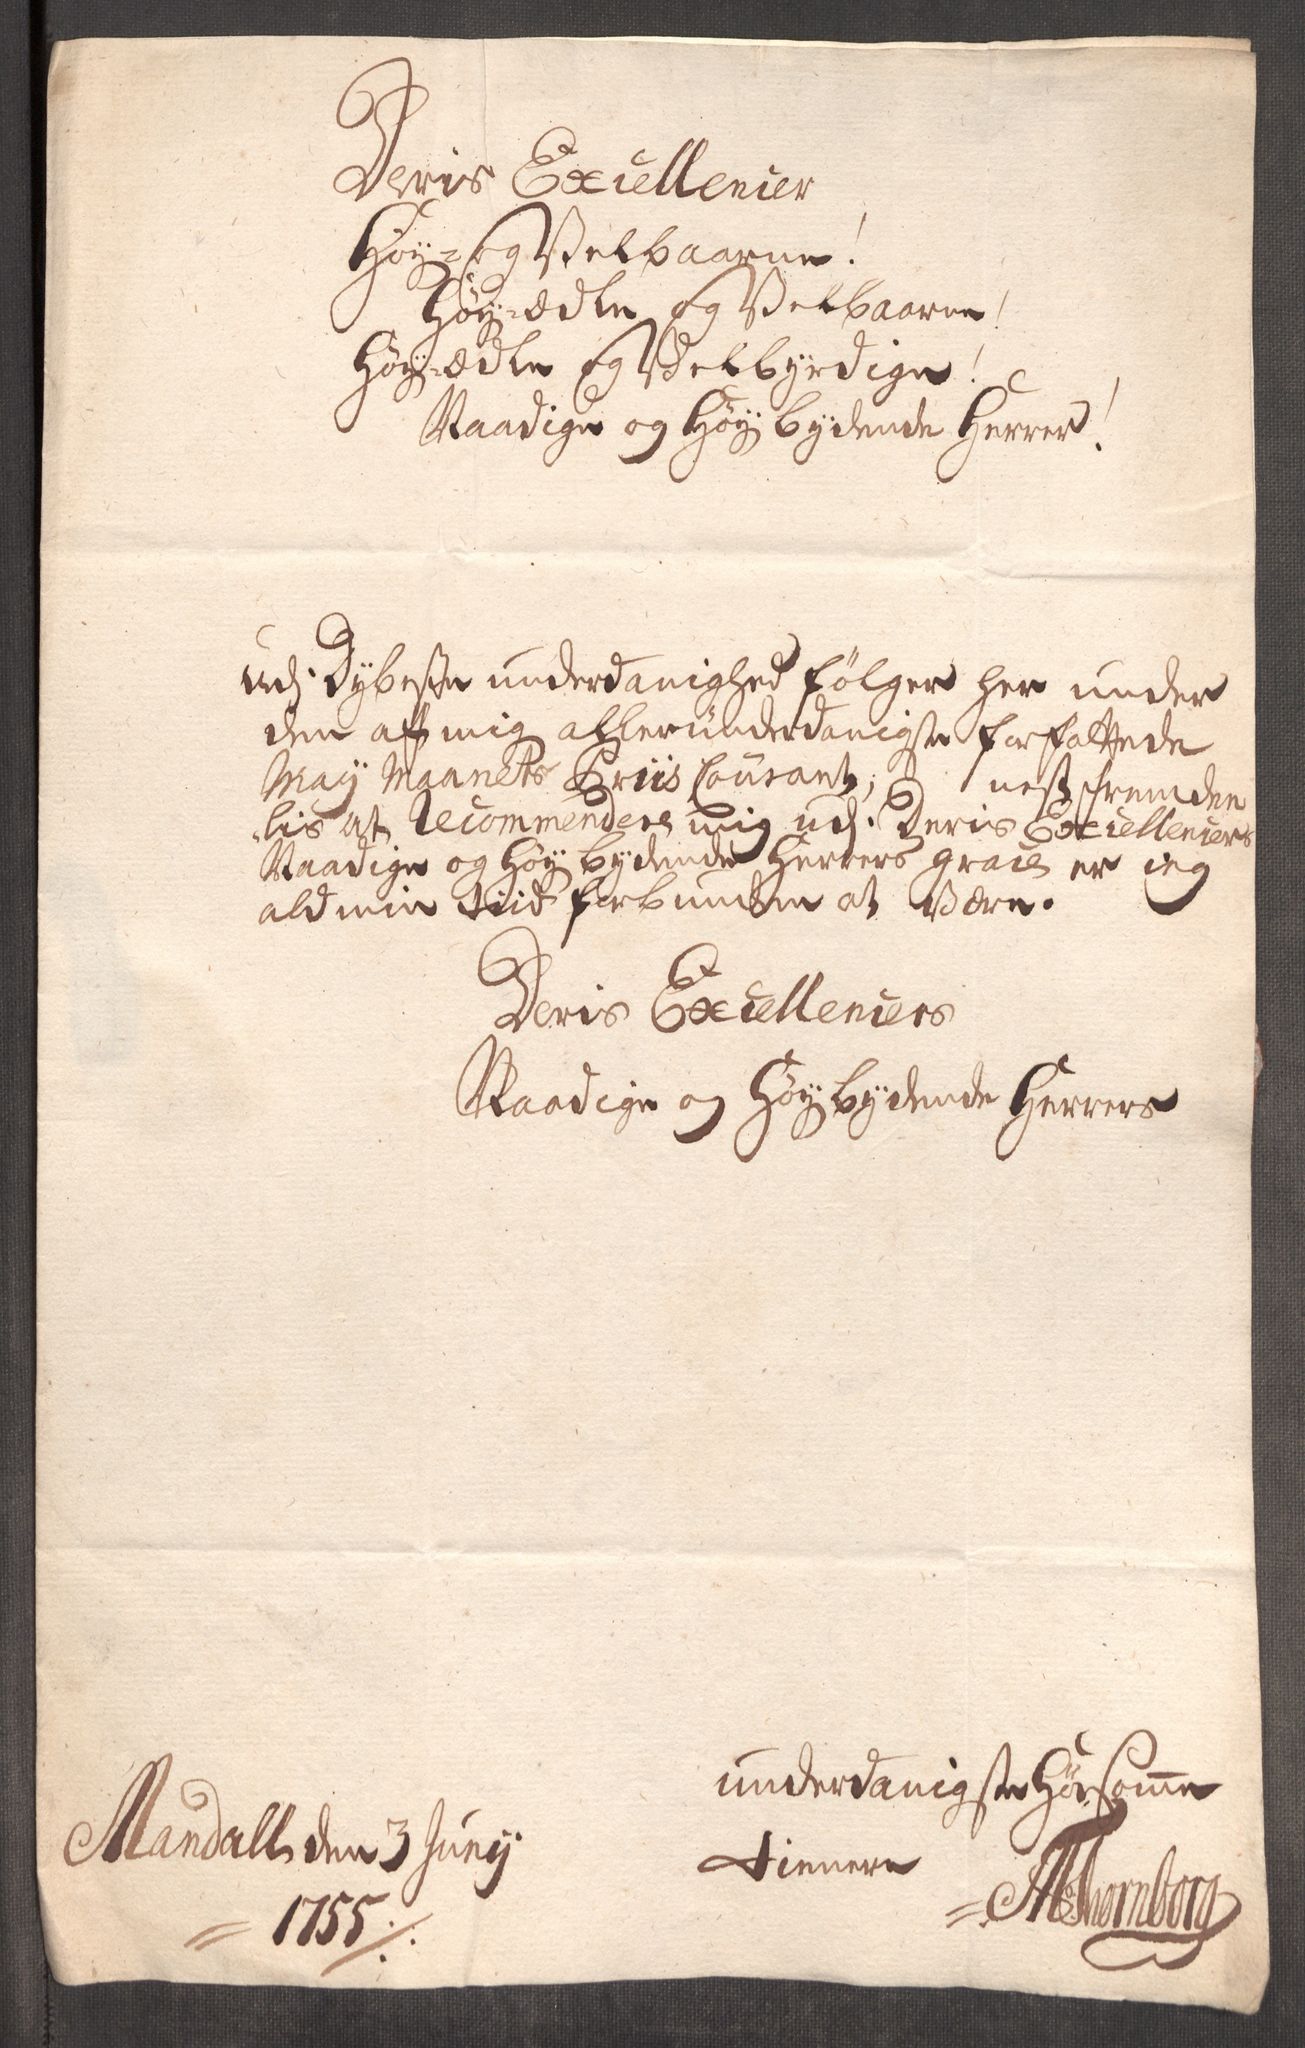 Deris Excellencer
Høy- og Velbaarne!
Høy-ædle og Velbaarne!
Høy-ædle og Velbyrdige!
Naadige og Høybydende Herrer!
Udj Dybeste underdanighed følger her under
den aff mig allerunderdanigste forfattede
May Maanets Priis Courant, nest fremdee
lis at Recommendere mig udj Deris Excellencers
Naadige og Høybydende Herrers grace er ieg
ald min tiid forbunden at være.
Deris Excellencers
Naadige og Høybydende Herrers
underdanigste Hørsomme
Mandall den 3 Junij
tienere
1755
Thornborg